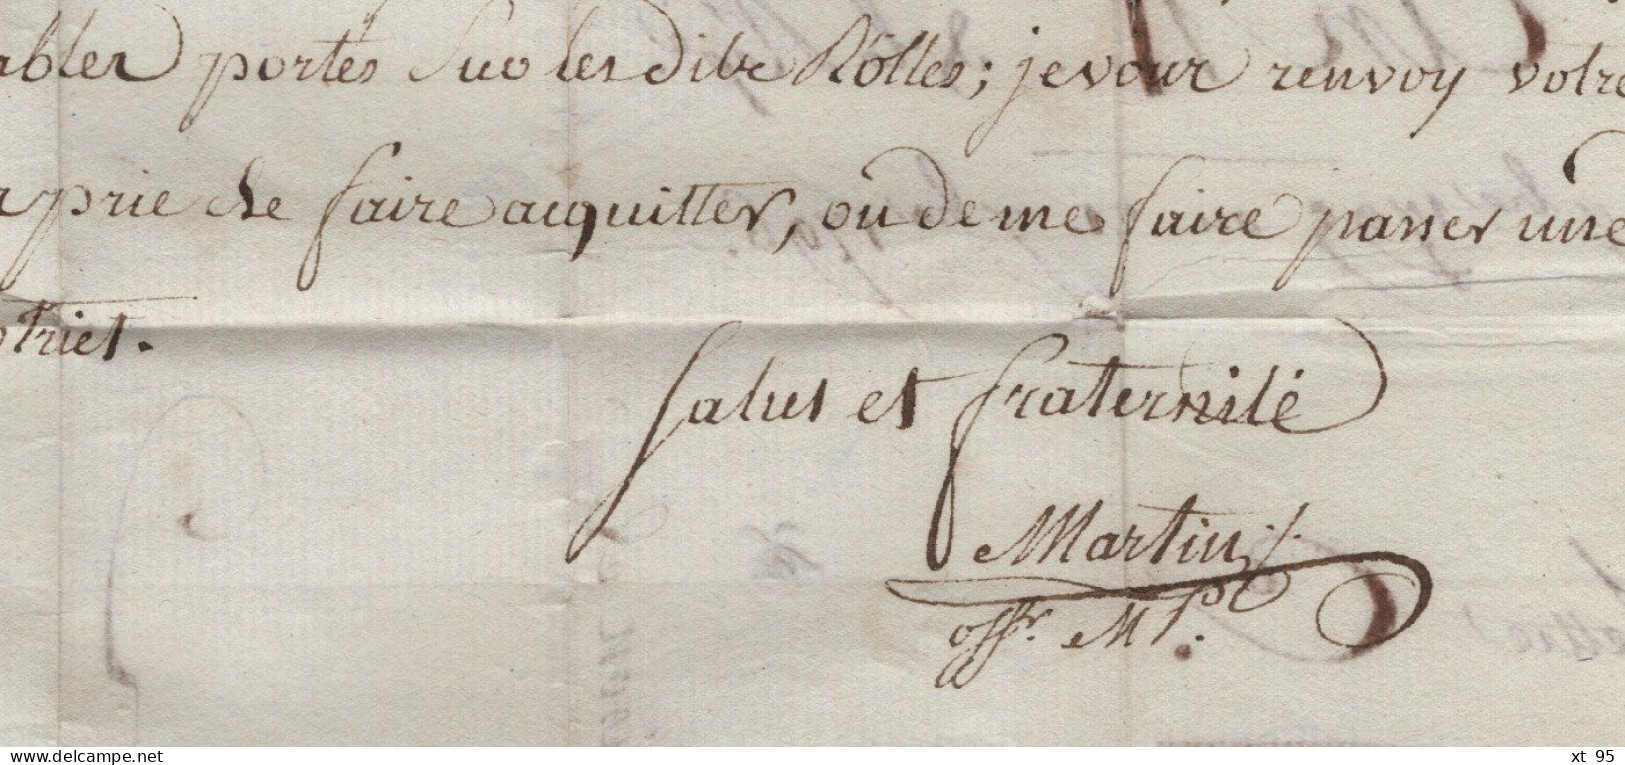 ables portés sur les dits Rôlles; je vous renvoy votre
prie de faire acquitter, ou de me faire passer une
Salut et fraternité
Martin
offr. Mpl.
www.delcampe.net
xt 95